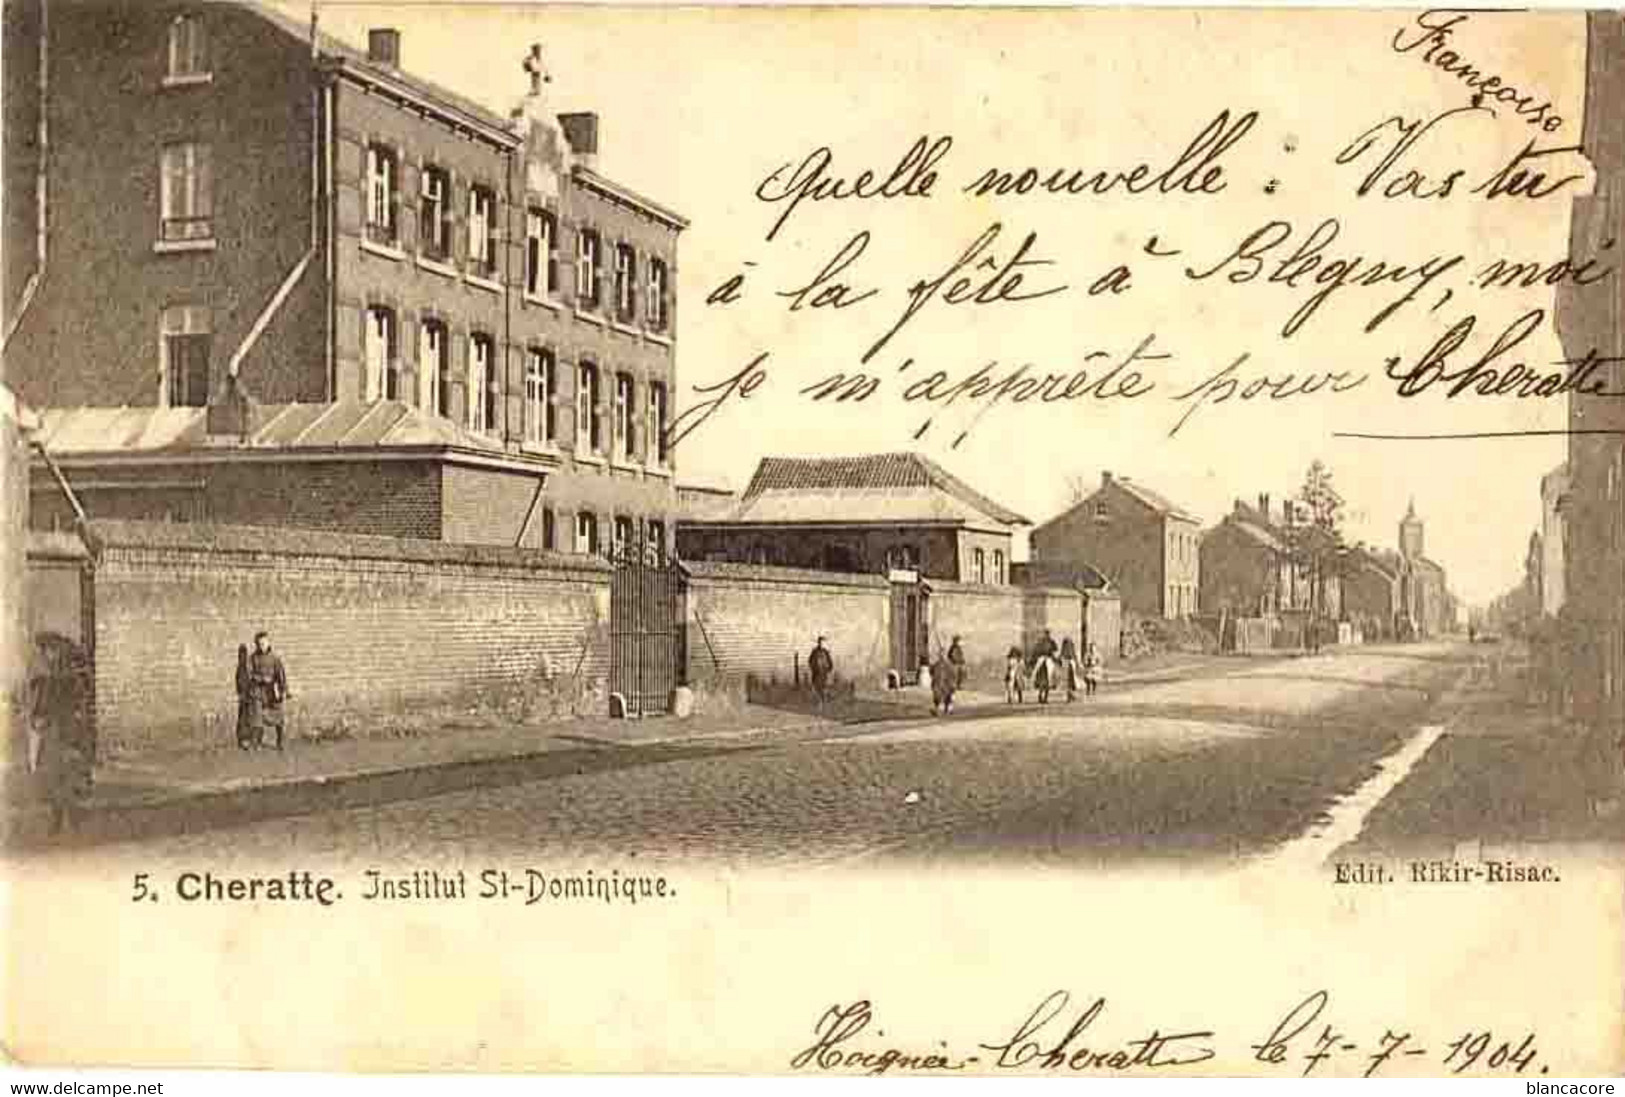 Françoise
Quelle nouvelle : Vas tu
à la fête à Blegny, moi
je m'apprête pour Cheratte
5. Cheratte. Institut St-Dominique.
Edit. Rikir-Risac.
Hoignée-Cheratte le 7-7-1904.
delcampe.net
blancacore